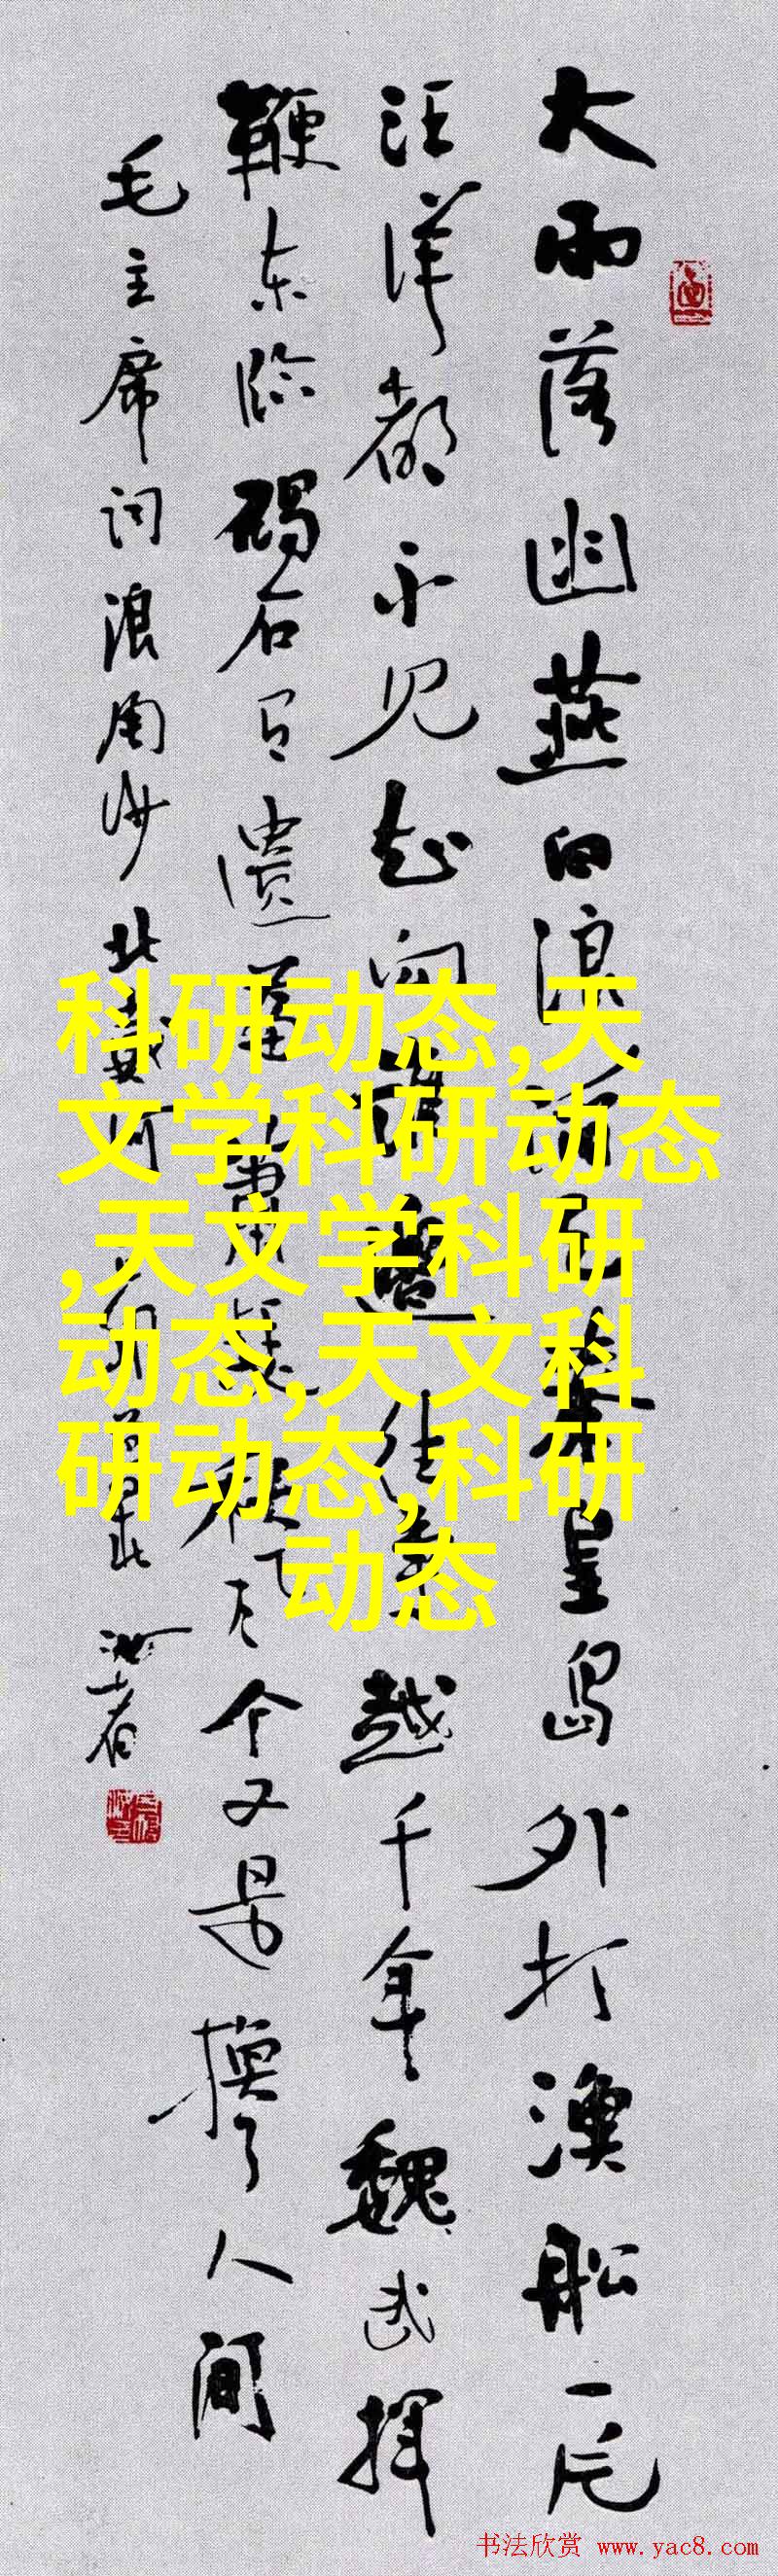 大雨落幽燕白浪滔天秦皇岛外打漁船一片
汪洋都不见知向谁邊往事越千年魏武挥
鞭东临碣石有遗篇萧瑟秋风今又是换了人间
毛主席词浪淘沙北戴河
科研动态,天
文学科研动态
,天文学科研
动态,天文科
研动态,科研
动态
书法欣赏 www.yac8.com